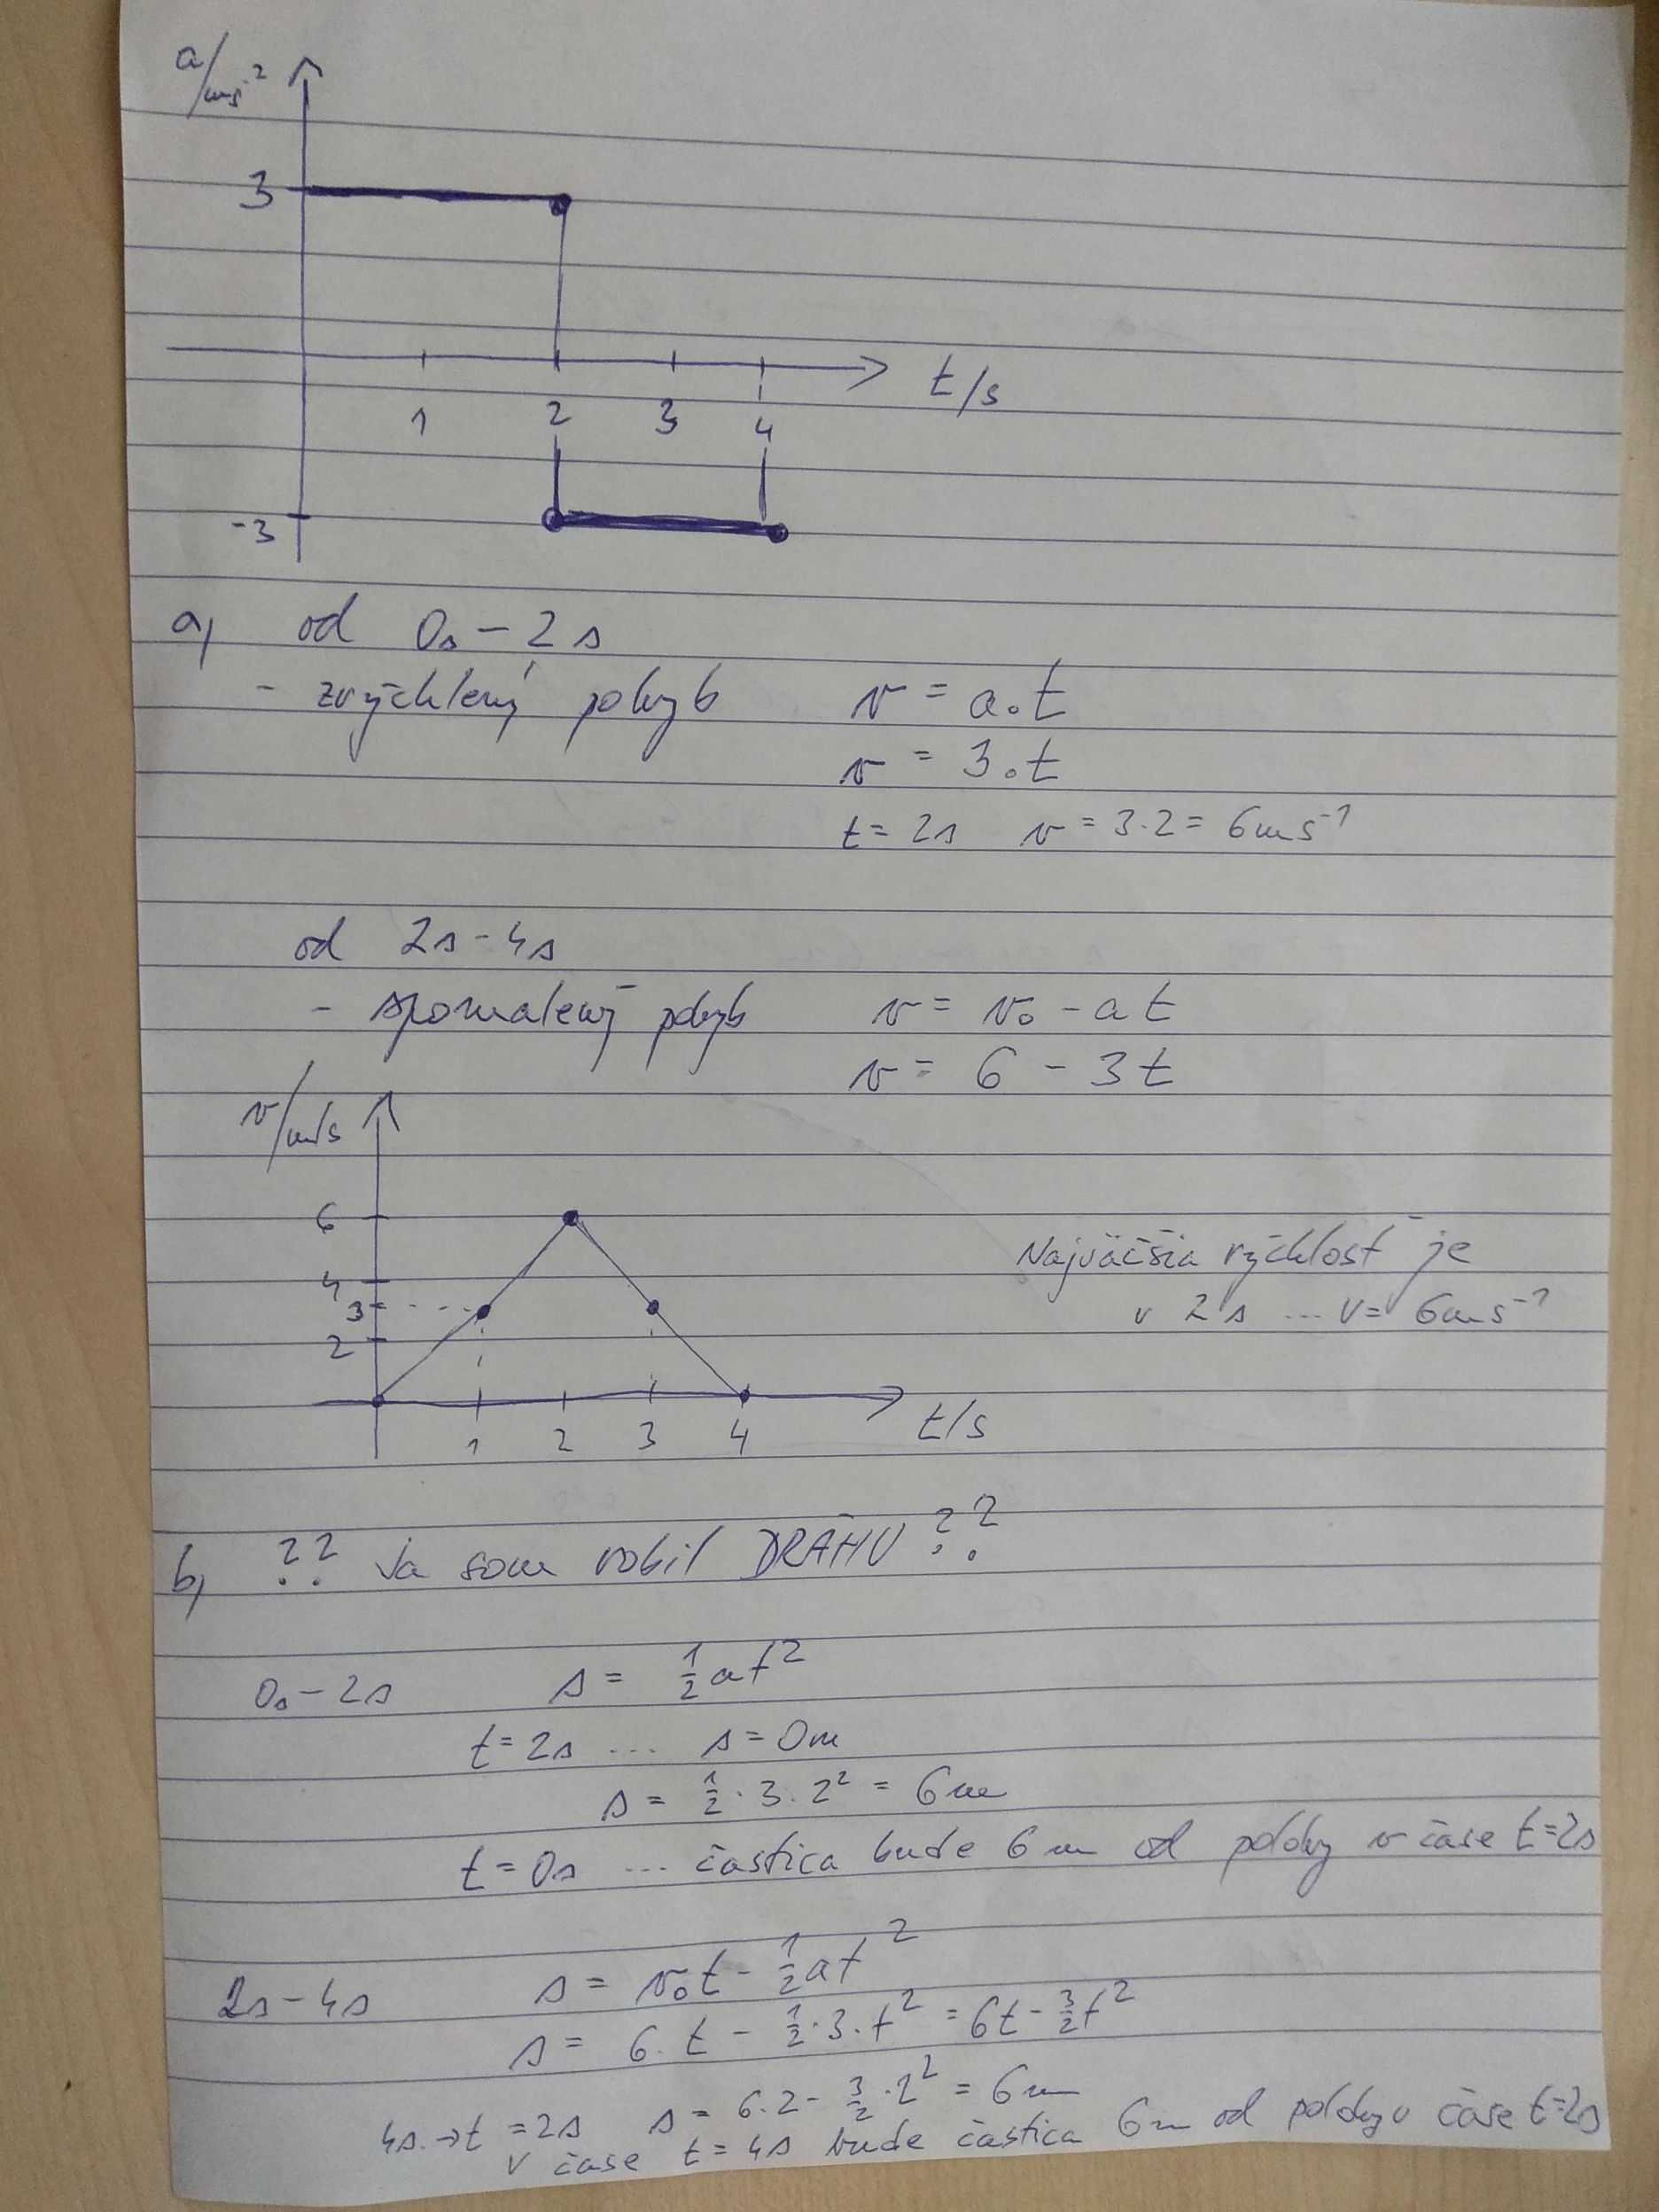 a/ms⁻²
3
t/s
1 2 3 4
-3
a) od 0s - 2s
- zrýchlený pohyb v = a.t
v = 3.t
t = 2s v = 3.2 = 6ms⁻¹
od 2s - 4s
- spomalený pohyb v = v₀ - at
v = 6 - 3t
v/m/s
6
4
3
2
Najväčšia rýchlosť je
v 2s ... v = 6ms⁻¹
t/s
1 2 3 4
b) ?? Ja som robil DRÁHU ??
0s - 2s s = ½at²
t = 2s ... s = 0m
s = ½.3.2² = 6m
t = 0s ... častica bude 6m od polohy v čase t=2s
2s - 4s s = v₀t - ½at²
s = 6.t - ½.3.t² = 6t - 3/2t²
4s → t = 2s s = 6.2 - 3/2.2² = 6m
v čase t = 4s bude častica 6m od polohy v čase t=2s